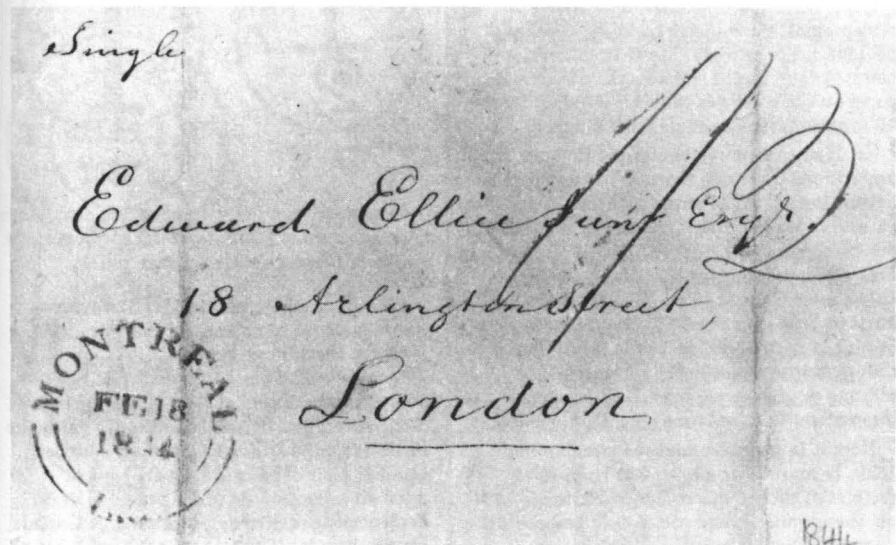 Single
Edward Ellice Junr Esqr.
18 Arlington Street,
London
MONTREAL
FE 18
1844
1844